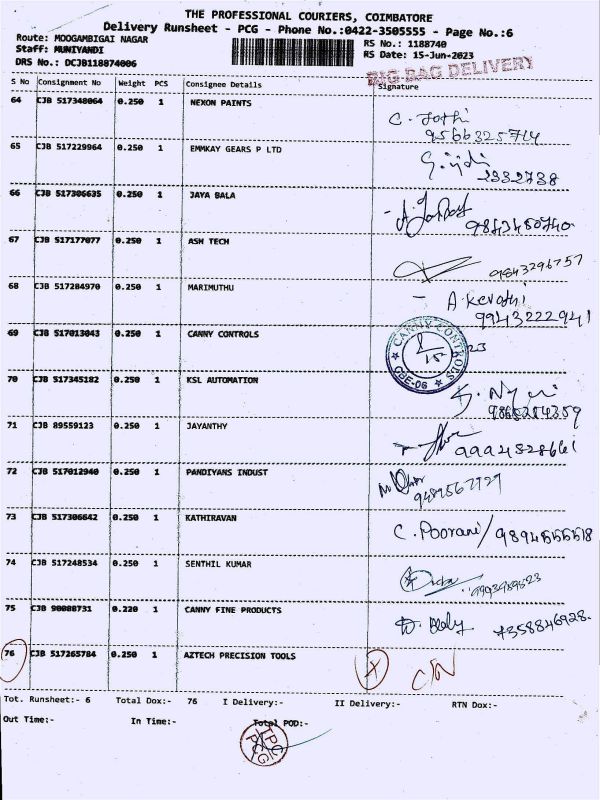 THE PROFESSIONAL COURIERS, COIMBATORE
Delivery Runsheet - PCG - Phone No.:0422-3505555 - Page No.:6
Route: MOOGAMBIGAI NAGAR
RS No.: 1188740
Staff: MUNIYANDI
RS Date: 15-Jun-2023
DRS No.: DCJB118874006
BIG BAG DELIVERY
S No Consignment No Weight PCS Consignee Details Signature
64 CJB 517348064 0.250 1 NEXON PAINTS
C. Jothi
9566325714
65 CJB 517229964 0.250 1 EMMKAY GEARS P LTD
2332738
66 CJB 517306635 0.250 1 JAYA BALA
9843480740
67 CJB 517177077 0.250 1 ASH TECH
9843296757
68 CJB 517284970 0.250 1 MARIMUTHU
- A. Revathi
9943222941
69 CJB 517013043 0.250 1 CANNY CONTROLS
CANNY CONTROLS
CBE-06
23
70 CJB 517345182 0.250 1 KSL AUTOMATION
9865284359
71 CJB 89559123 0.250 1 JAYANTHY
9994828661
72 CJB 517012940 0.250 1 PANDIYANS INDUST
9489567729
73 CJB 517306642 0.250 1 KATHIRAVAN
C. Poorani/9894555518
74 CJB 517248534 0.250 1 SENTHIL KUMAR
75 CJB 90088731 0.220 1 CANNY FINE PRODUCTS
7358846928.
76 CJB 517265784 0.250 1 AZTECH PRECISION TOOLS
X
Tot. Runsheet:- 6 Total Dox:- 76 I Delivery:- II Delivery:- RTN Dox:-
Out Time:- In Time:- Total POD:-